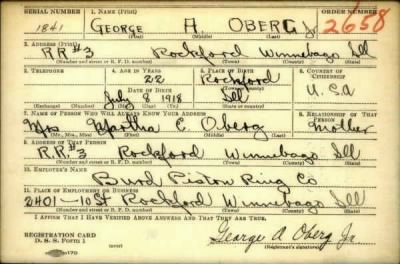 SERIAL NUMBER 1. NAME (Print) ORDER NUMBER
1841 GEORGE A OBERG Jr 2658
(First) (Middle) (Last)
2. ADDRESS (Print)
RR#3 Rockford Winnebago Ill
(Number and street or R. F. D. number) (Town) (County) (State)
3. TELEPHONE 4. AGE IN YEARS 5. PLACE OF BIRTH 6. COUNTRY OF CITIZENSHIP
22 Rockford
DATE OF BIRTH (Town)
July 9 1918 Ill U.S.A
(Exchange) (Number) (Mo.) (Day) (Yr.) (State or country)
7. NAME OF PERSON WHO WILL ALWAYS KNOW YOUR ADDRESS 8. RELATIONSHIP OF THAT PERSON
Mrs Martha E. Oberg Mother
(Mr., Mrs., Miss) (First) (Middle) (Last)
9. ADDRESS OF THAT PERSON
R.R.#3 Rockford Winnebago Ill
(Number and street or R. F. D. number) (Town) (County) (State)
10. EMPLOYER'S NAME
Burd Piston Ring Co
11. PLACE OF EMPLOYMENT OR BUSINESS
2401-10 St Rockford Winnebago Ill
(Number and street or R. F. D. number) (Town) (County) (State)
I AFFIRM THAT I HAVE VERIFIED ABOVE ANSWERS AND THAT THEY ARE TRUE.
REGISTRATION CARD George A Oberg Jr
D. S. S. Form 1 (Registrant's signature)